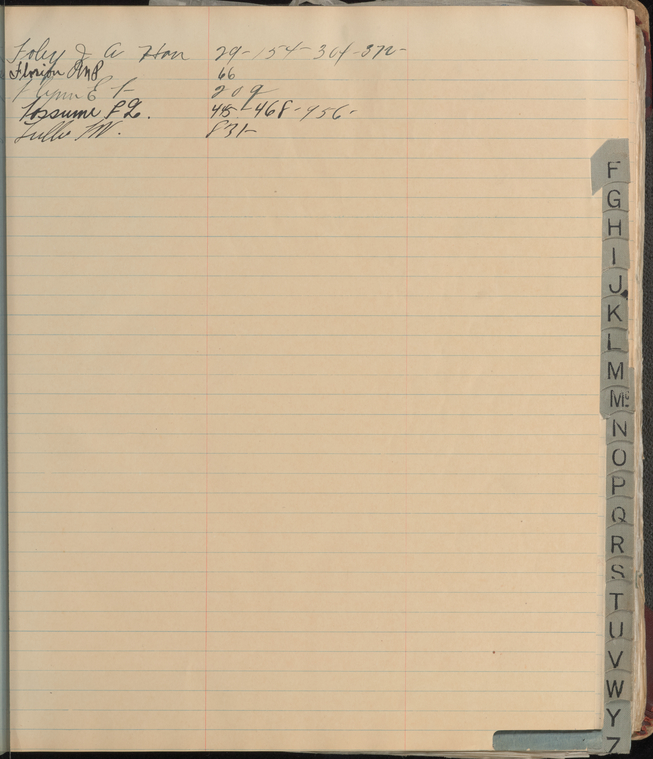 Foley J A Hon 29-154-304-372-
Florion
66
Flynn E F 209
Fossume P L. 45-468-456-
831-
F
G
H
I
J
K
L
M
Mc
N
O
P
Q
R
S
T
U
V
W
Y
Z